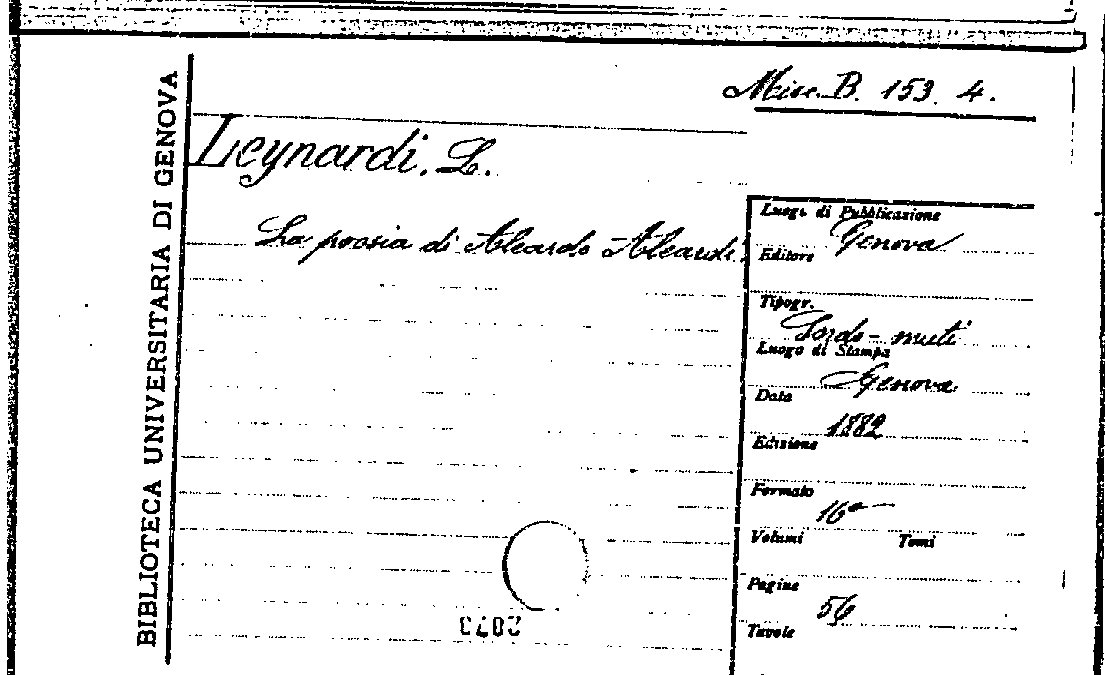 BIBLIOTECA UNIVERSITARIA DI GENOVA
Misc. B. 153. 4.
Leynardi, L.
La poesia di Aleardo Aleardi.
Luogo di Pubblicazione
Genova
Editore
Tipogr.
Sordo-muti
Luogo di Stampa
Genova
Data
1882
Edizione
Formato
16°
Volumi Tomi
Pagine
56
Tavole
2073